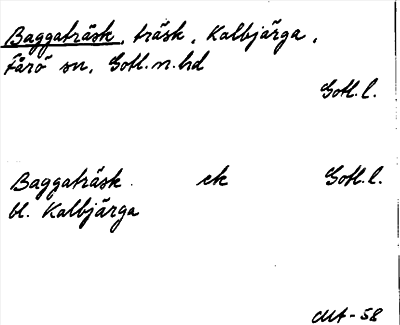 Baggaträsk, träsk, Kalbjärga,
Fårö sn, Gotl. n. hd
Gotl. l.
Baggaträsk. ek Gotl. l.
bl. Kalbjärga
-58